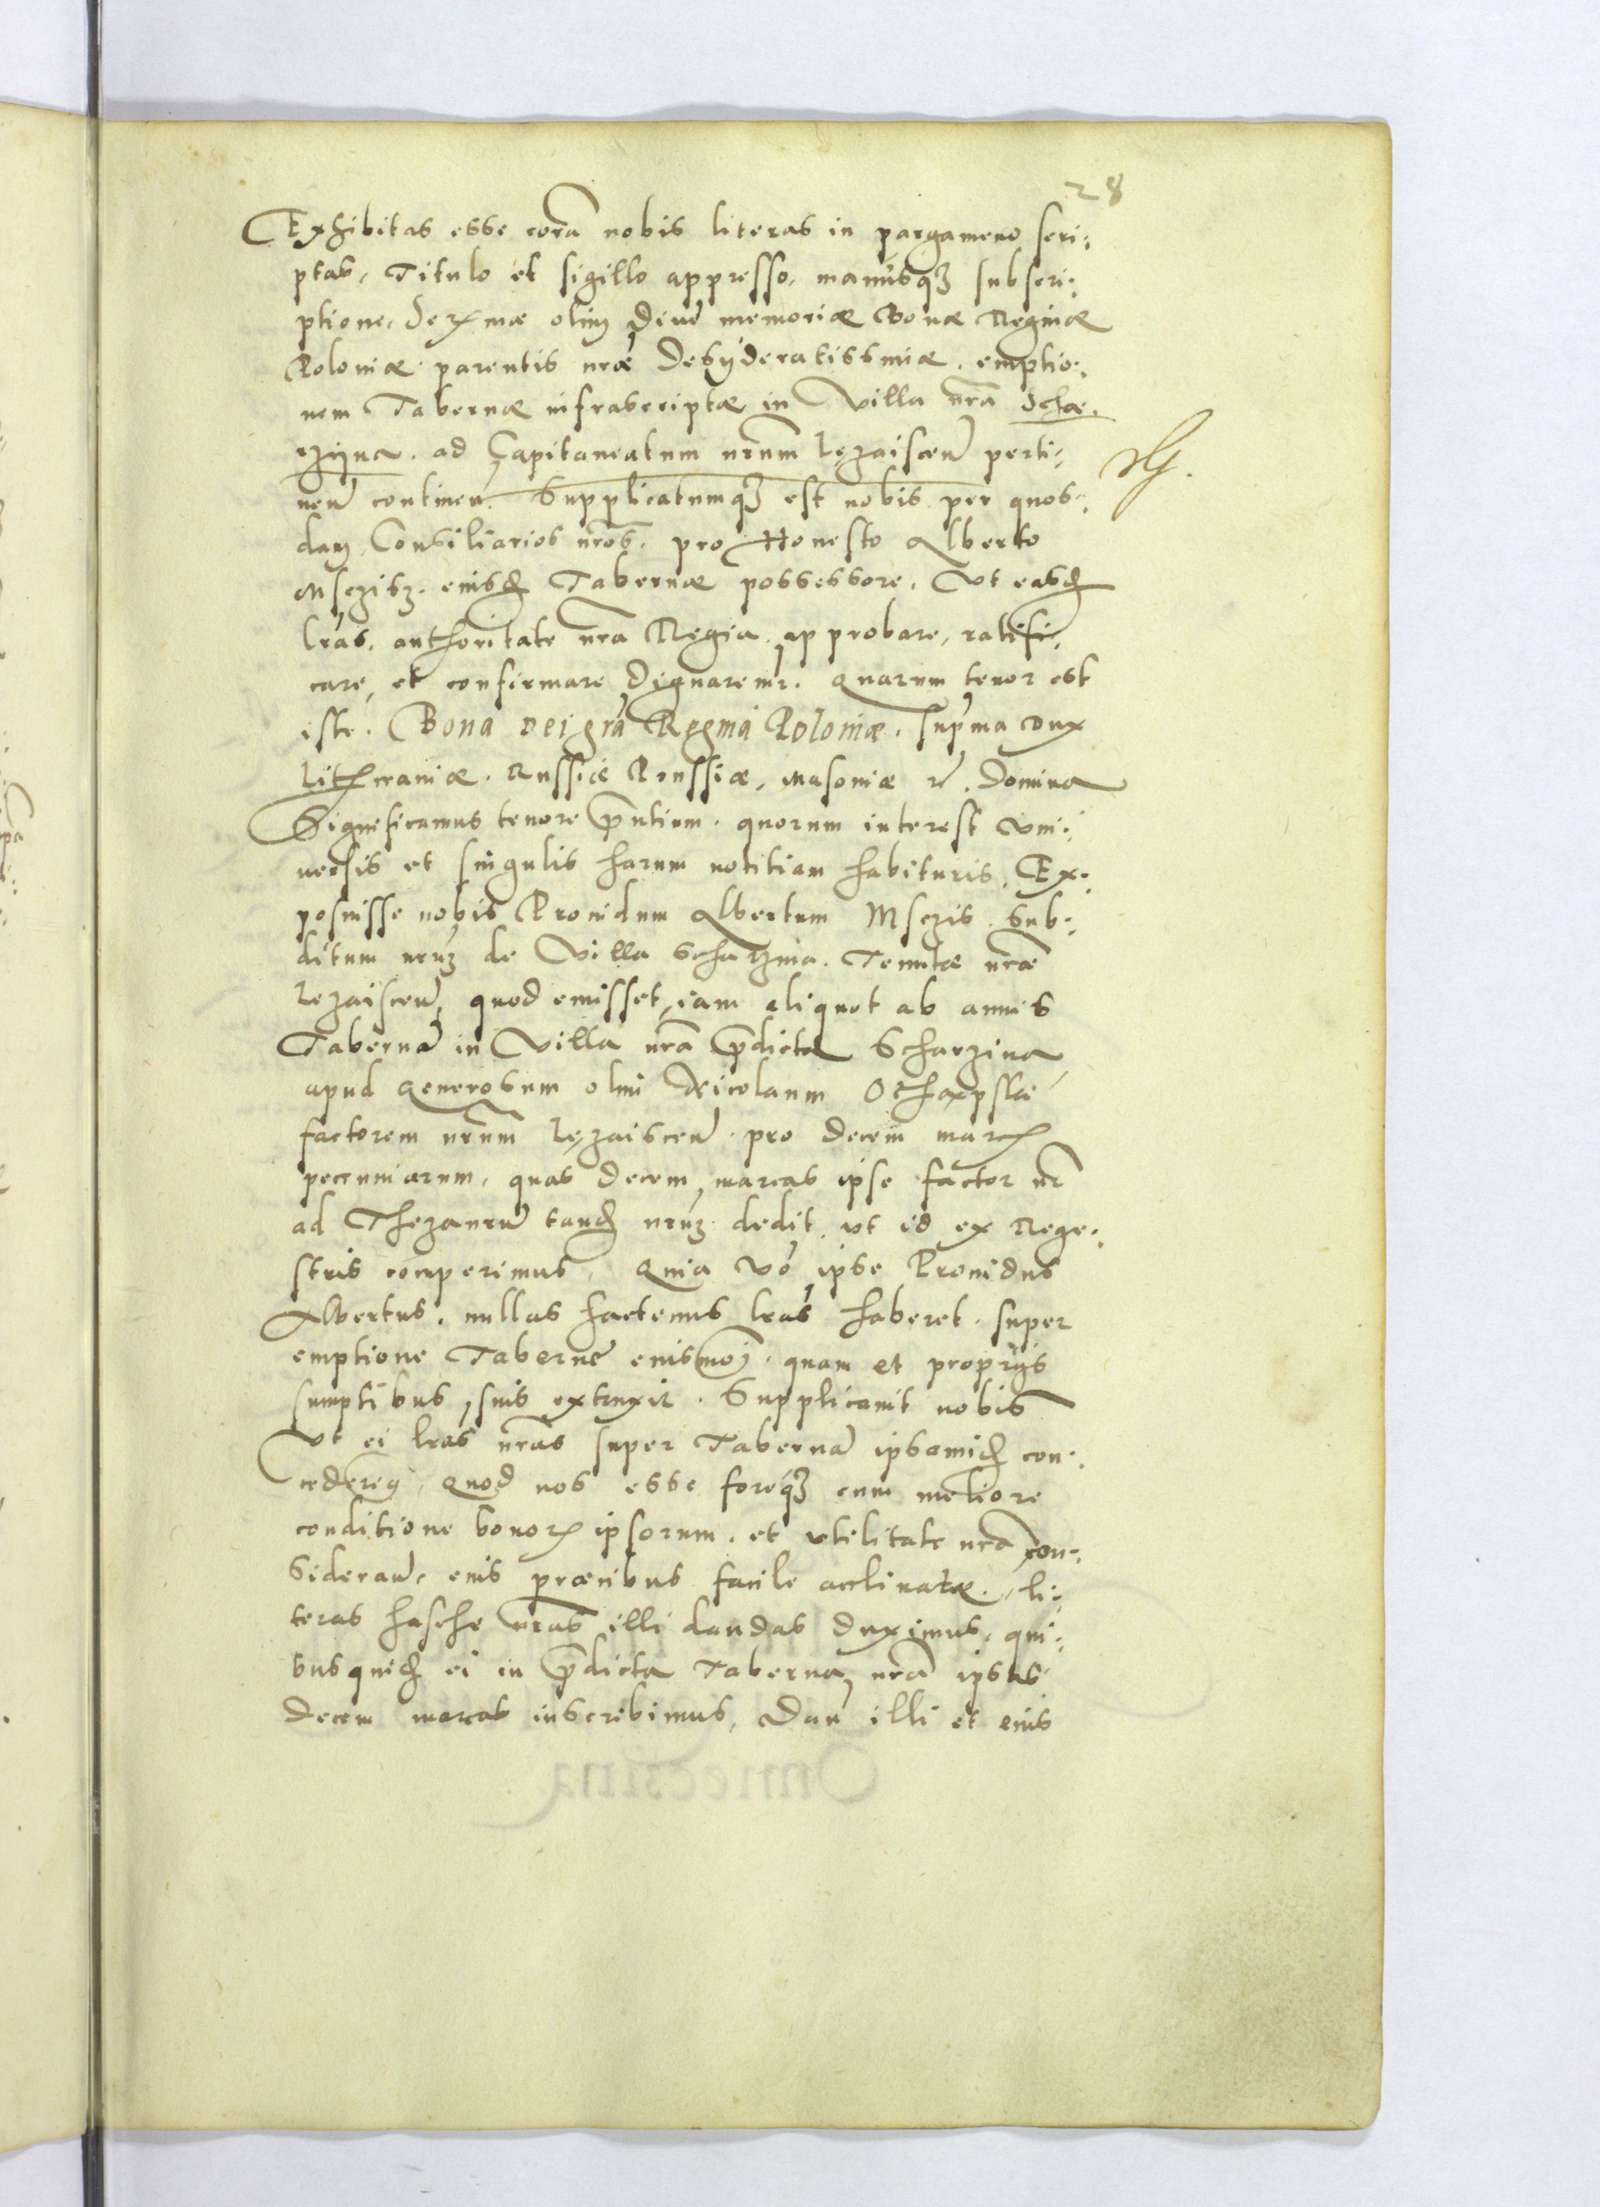 28
Exhibitas esse corã nobis literas in pargameno scri:
ptas, Titulo et sigillo appresso, manusq3 subscri:
ptione, Serꝫmæ olim divæ memoriæ Bonæ Reginæ
Poloniæ parentis nræ desyderatissimæ, emptio:
nem Tabernæ infrascriptæ in Villa nrã Scha:
rzyna, ad Capitaneatum nrum Lezaiscen̄ perti:
nen̄ continen̄. Supplicatumq3 est nobis per quos:
dam Consiliarios nros, pro Honesto Alberto
Msczisz, eiusd̄ Tabernæ possessore, Vt easd̄
lras, authoritate nra Regia, approbare, ratifi:
care, et confirmare dignaremr. Quarum tenor est
iste. Bona Dei grã Regina Poloniæ, supma Dux
Litꝫwaniæ, Russiæ Prussiæ, Masoviæ ꝛc̄. Domina
Significamus tenore pñtium, quorum interest vni:
uersis et singulis harum notitiam habituris, Ex:
posuisse nobis Prouidum Albertum Msczis, Sub:
ditum nrum de Villa Scharzina, Tenutæ nræ
Lezaiscen̄, quod emisset, iam aliquot ab annis
Tabernā in Villa nrã pdicta Scharzina
apud Generosum olim Nicolaum
factorem nrum Lezaiscen̄, pro decem marcꝫ
peccuniarum, quas decem marcas ipse factor nr
ad Thezaurū tand̄ nrum dedit, vt id ex Rege:
stris comperimus, Quia vo ipse Prouidus
Albertus, nullas hactenus lras haberet, super
emptione Tabernæ eiusmoi, quam et proprijs
sumptibus suis extruxit. Supplicauit nobis
Vt ei lras nras super Tabernā ipsamid̄ con:
cederem, Quod nos esse foreq3 cum meliore
conditione bonorꝫ ipsorum, et vtilitate nrã con:
sideran̄, eius præcibus facile acclinatæ, li:
teras hasche nras illi dandas duximus, qui:
busquid̄ ei in pdicta Taberna nrã ipsas
decem marcas inscribimus, Dan̄ illi et eius